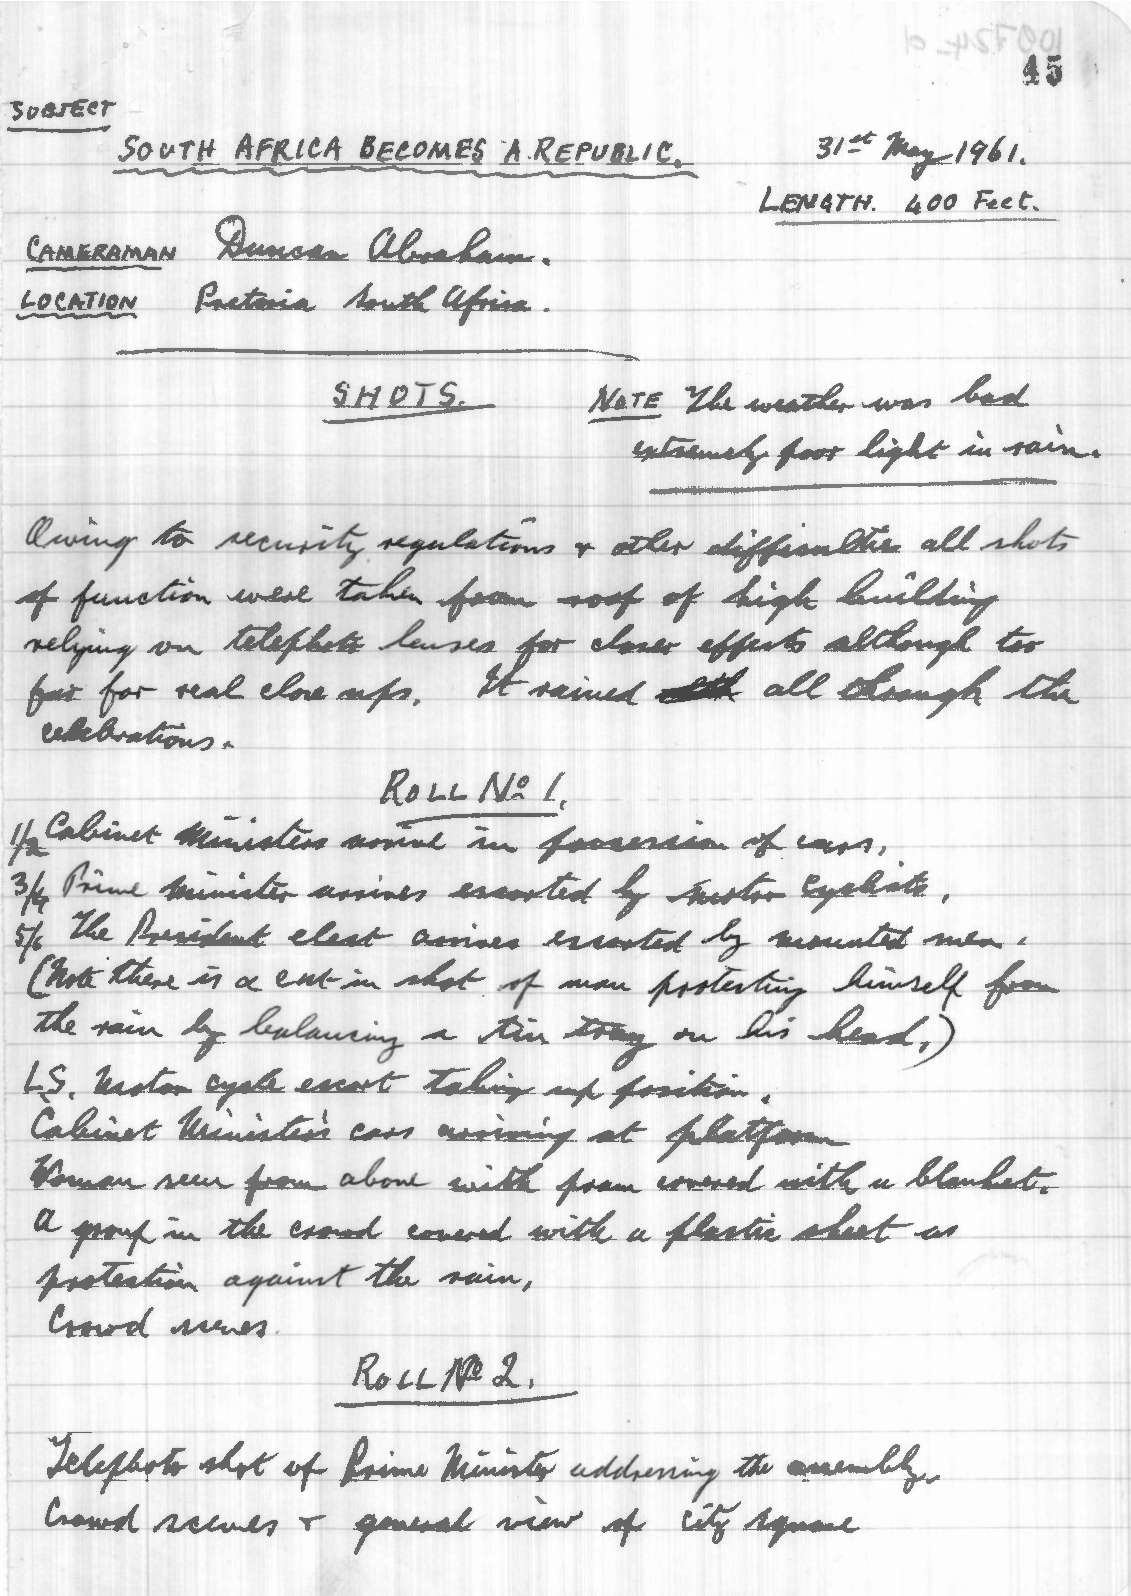 100724 d
45
SUBJECT
SOUTH AFRICA BECOMES A REPUBLIC. 31st May 1961.
LENGTH. 400 Feet.
CAMERAMAN Duncan Abraham.
LOCATION Pretoria South Africa.
SHOTS. NOTE The weather was bad
extremely poor light in rain.
Owing to security regulations & other difficulties all shots
of function were taken from roof of high building
relying on telephoto lenses for closer effects although too
far for real close ups. It rained all through the
celebrations.
ROLL No 1.
1/2 Cabinet Ministers arrive in possession of cars.
3/4 Prime Minister arrives escorted by motor cyclists.
5/6 The President elect arrives escorted by mounted men.
(Note there is a cut-in shot of man protecting himself from
the rain by balancing a tin tray on his head.)
LS. Motor cycle escort taking up position.
Cabinet Minister's cars arriving at platform
Woman seen from above with pram covered with a blanket.
A group in the crowd covered with a plastic sheet as
protection against the rain,
Crowd scenes.
ROLL No 2.
Telephoto shot of Prime Minister addressing the assembly.
Crowd scenes & general view of city square